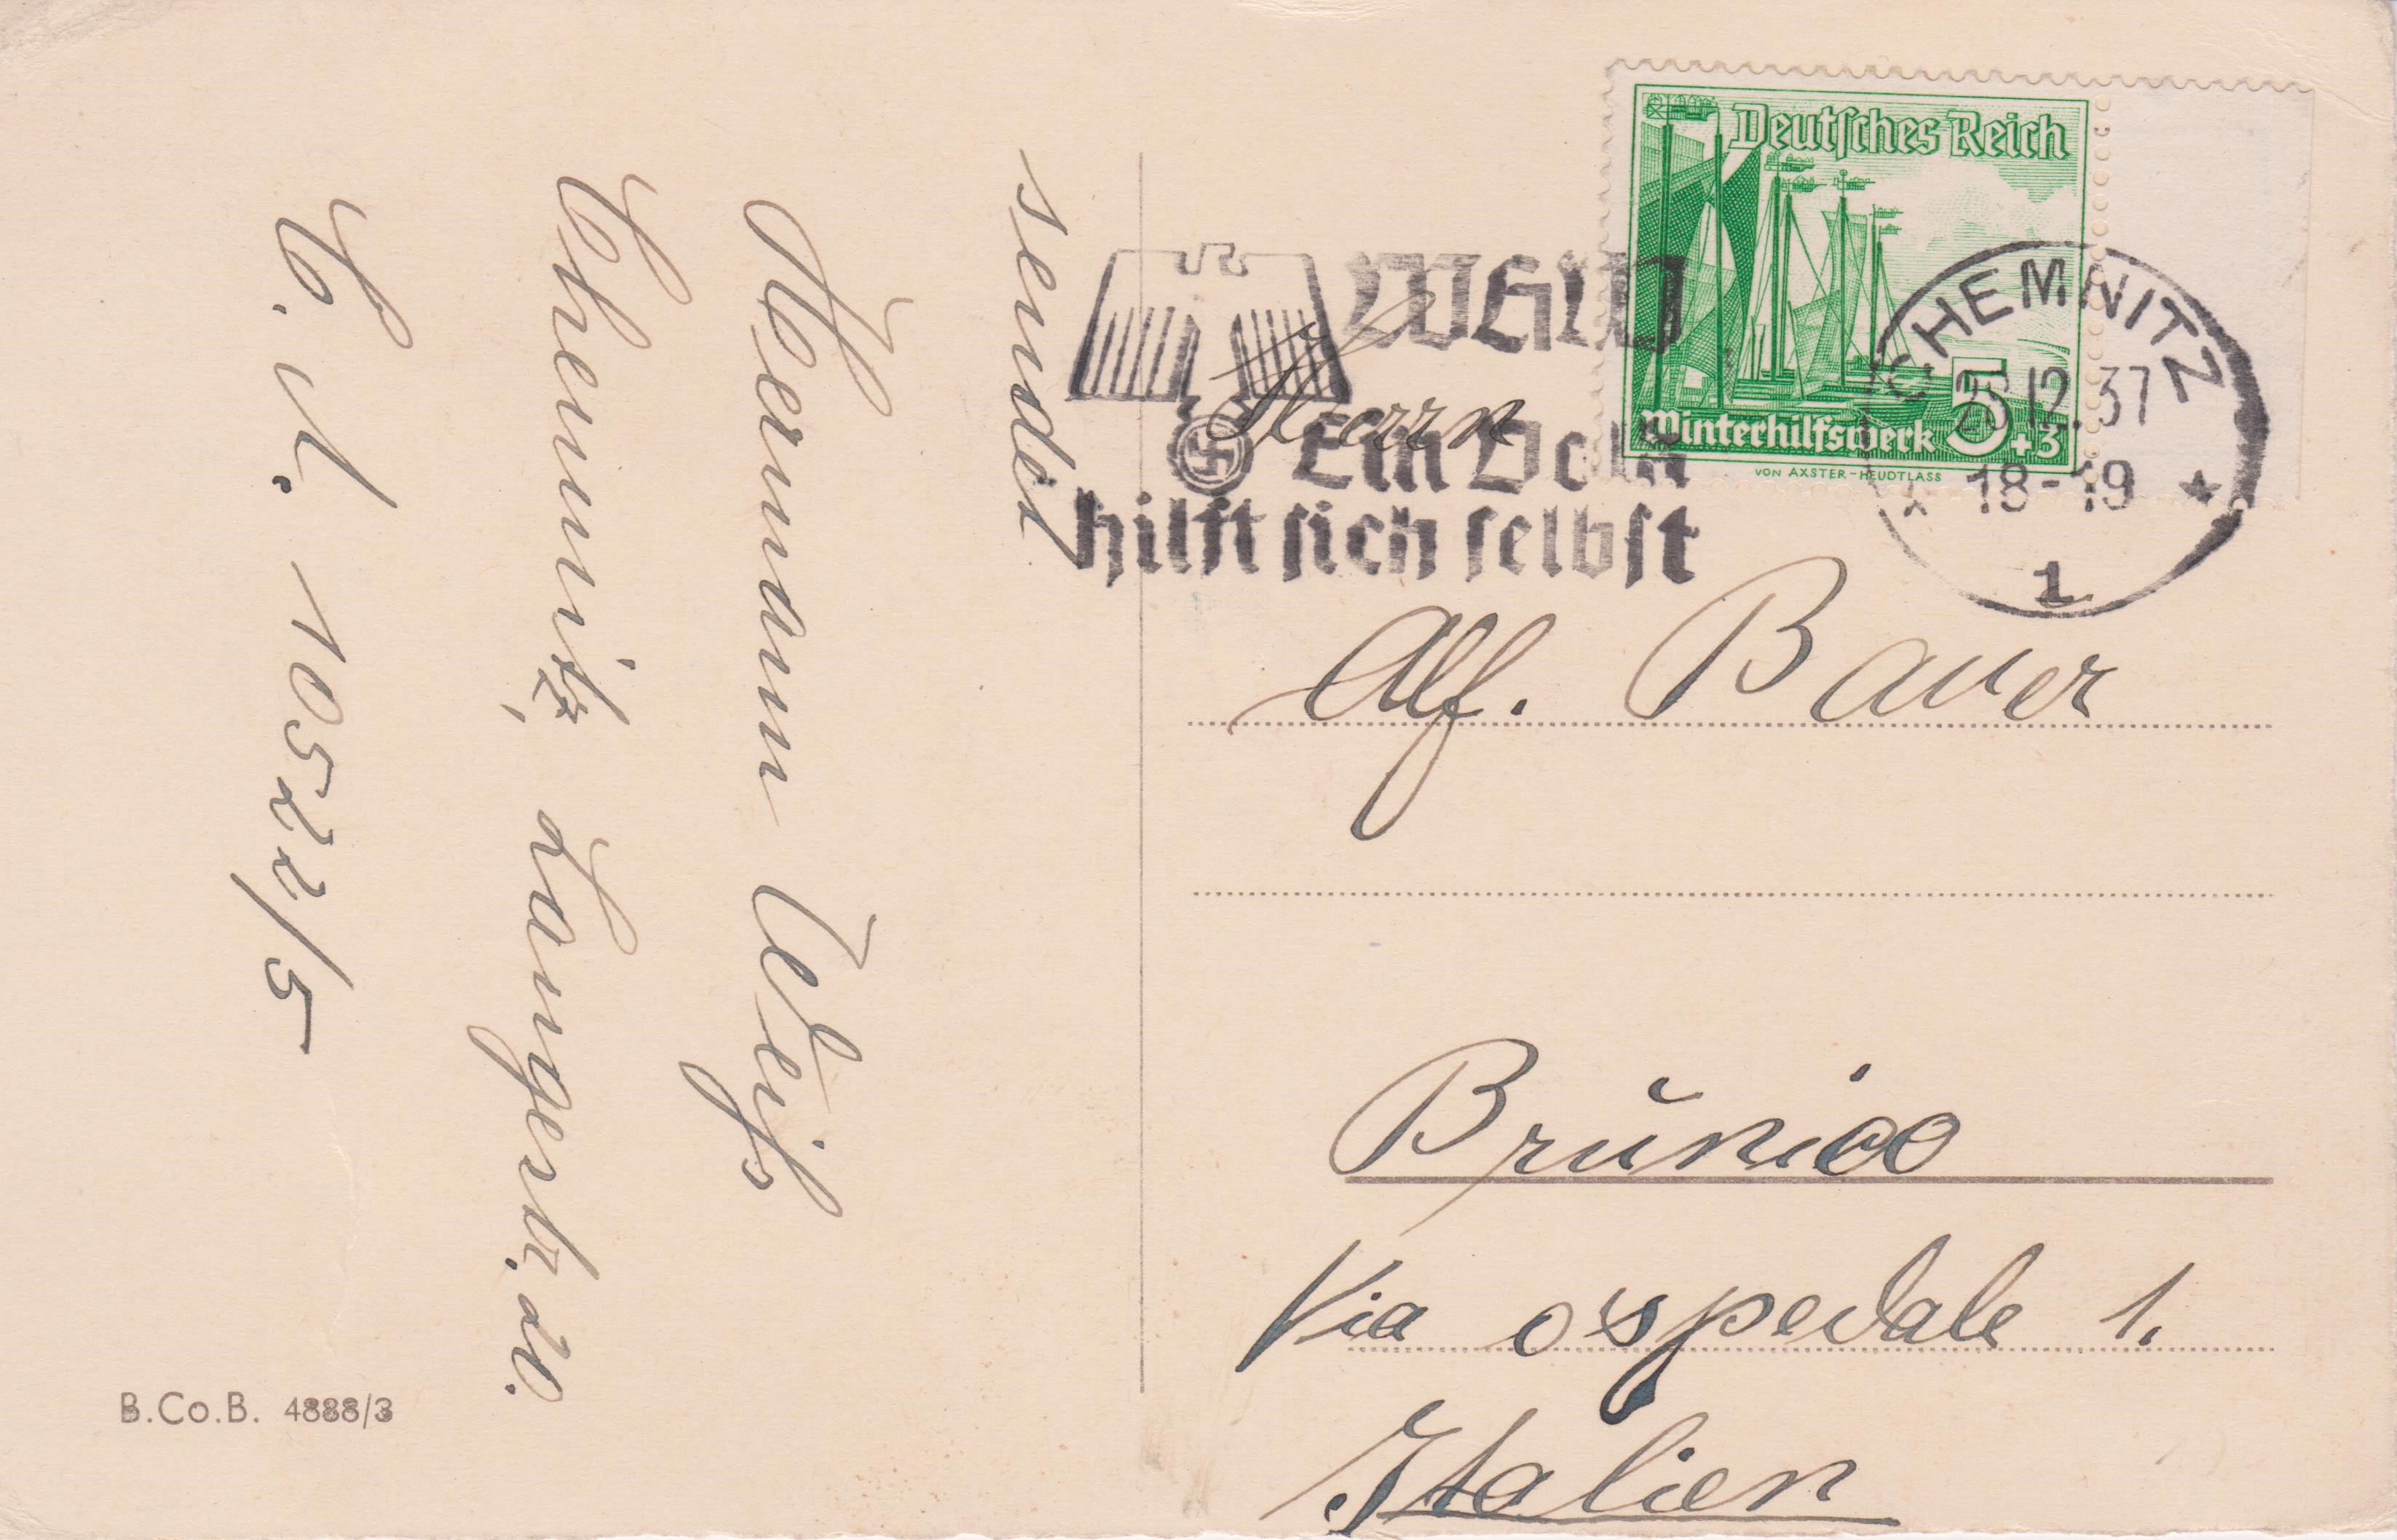 sendet
Hermann Weiß
Chemnitz, Langestr. 20.
C. A. 10522/5
B.Co.B. 4888/3
WHW
Ein Volk
hilft sich selbst
Deutsches Reich
Winterhilfswerk 5+3
VON AXSTER-HEUDTLASS
CHEMNITZ
12.37
18-19
1
Herrn
Alf. Bauer
Brŭnico
Via ospedale 1.
Italien